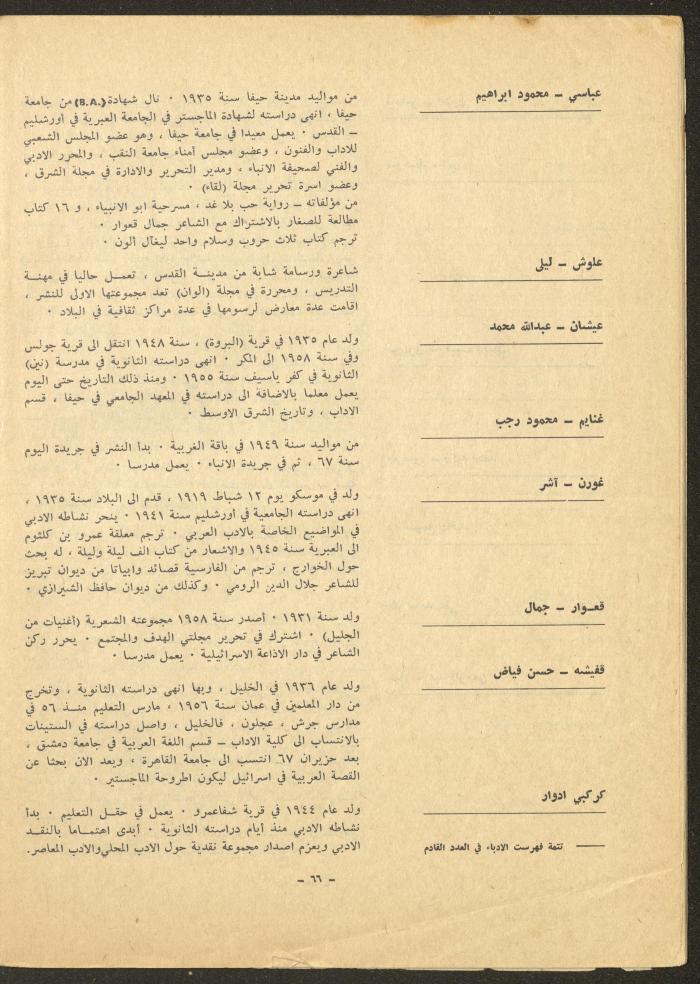 عباسي ــ محمود ابراهيم
من مواليد مدينة حيفا سنة ١٩٣٥ ٠ نال شهادة (B.A.) من جامعة
حيفا ، انهى دراسته لشهادة الماجستر في الجامعة العبرية في أورشليم
ــ القدس ٠ يعمل معيدا في جامعة حيفا ، وهو عضو المجلس الشعبي
للاداب والفنون ، وعضو مجلس أمناء جامعة النقب ، والمحرر الادبي
والفني لصحيفة الانباء ، ومدير التحرير والادارة في مجلة الشرق ،
وعضو اسرة تحرير مجلة (لقاء) ٠
من مؤلفاته ــ رواية حب بلا غد ، مسرحية ابو الانبياء ، و ١٦ كتاب
مطالعة للصغار بالاشتراك مع الشاعر جمال قعوار ٠
ترجم كتاب ثلاث حروب وسلام واحد ليغآل ألون ٠
علوش ــ ليلى
شاعرة ورسامة شابة من مدينــة القدس ، تعمــل حاليا في مهنــة
التدريس ، ومحررة في مجلة (الوان) تعد مجموعتها الاولى للنشر ،
اقامت عدة معارض لرسومها في عدة مراكز ثقافية في البلاد ٠
عيشان ــ عبدالله محمد
ولد عام ١٩٣٥ في قرية (البروة) ، سنة ١٩٤٨ انتقل الى قرية جولس
وفي سنة ١٩٥٨ الى المكر ٠ انهى دراسته الثانوية في مدرسة (نين)
الثانوية في كفر ياسيف سنة ١٩٥٥ ٠ ومنذ ذلك التاريخ حتى اليوم
يعمل معلما بالاضافة الى دراسته في المعهد الجامعي في حيفا ، قسم
الاداب ، وتاريخ الشرق الاوسط ٠
غنايم ــ محمود رجب
من مواليد سنة ١٩٤٩ في باقة الغربية ٠ بدأ النشر في جريدة اليوم
سنة ٦٧ ، ثم في جريدة الانباء ٠ يعمل مدرسا ٠
غورن ــ آشر
ولد في موسكو يوم ١٢ شباط ١٩١٩ ، قدم الى البلاد سنة ١٩٣٥ ،
انهى دراسته الجامعية في أورشليم سنة ١٩٤١ ٠ ينحر نشاطه الادبي
في المواضيع الخاصة بالادب العربي ٠ ترجم معلقة عمرو بن كلثوم
الى العبرية سنة ١٩٤٥ والاشعار من كتاب الف ليلة وليلة ، له بحث
حول الخوارج ، ترجم من الفارسية قصائد وابياتا من ديوان تبريز
للشاعر جلال الدين الرومي ٠ وكذلك من ديوان حافظ الشيرازي ٠
قعــوار ــ جمال
ولد سنة ١٩٣١ ٠ أصدر سنة ١٩٥٨ مجموعته الشعرية (أغنيات من
الجليل) ٠ اشترك في تحرير مجلتي الهدف والمجتمع ٠ يحرر ركن
الشاعر في دار الاذاعة الاسرائيلية ٠ يعمل مدرسا ٠
قفيشه ــ حسن فياض
ولد عام ١٩٣٦ في الخليل ، وبها انهى دراسته الثانوية ، وتخرج
من دار المعلمين في عمان سنة ١٩٥٦ ، مارس التعليم منــذ ٥٦ في
مدارس جرش ، عجلون ، فالخليل ، واصل دراسته في الستينات
بالانتساب الى كلية الاداب ــ قسم اللغة العربية في جامعة دمشق ،
بعد حزيران ٦٧ انتسب الى جامعة القاهرة ، وبعد الان بحثا عن
القصة العربية في اسرائيل ليكون اطروحة الماجستير ٠
كركبي ادوار
ولد عام ١٩٤٤ في قرية شفاعمرو ٠ يعمل في حقــل التعليم ٠ بدأ
نشاطه الادبي منذ أيام دراسته الثانوية ٠ أبدى اهتمــاما بالنقــد
الادبي ويعزم اصدار مجموعة نقدية حول الادب المحلي والادب المعاصر.
ــــ تتمة فهرست الادباء في العدد القادم
ــ ٦٦ ــ